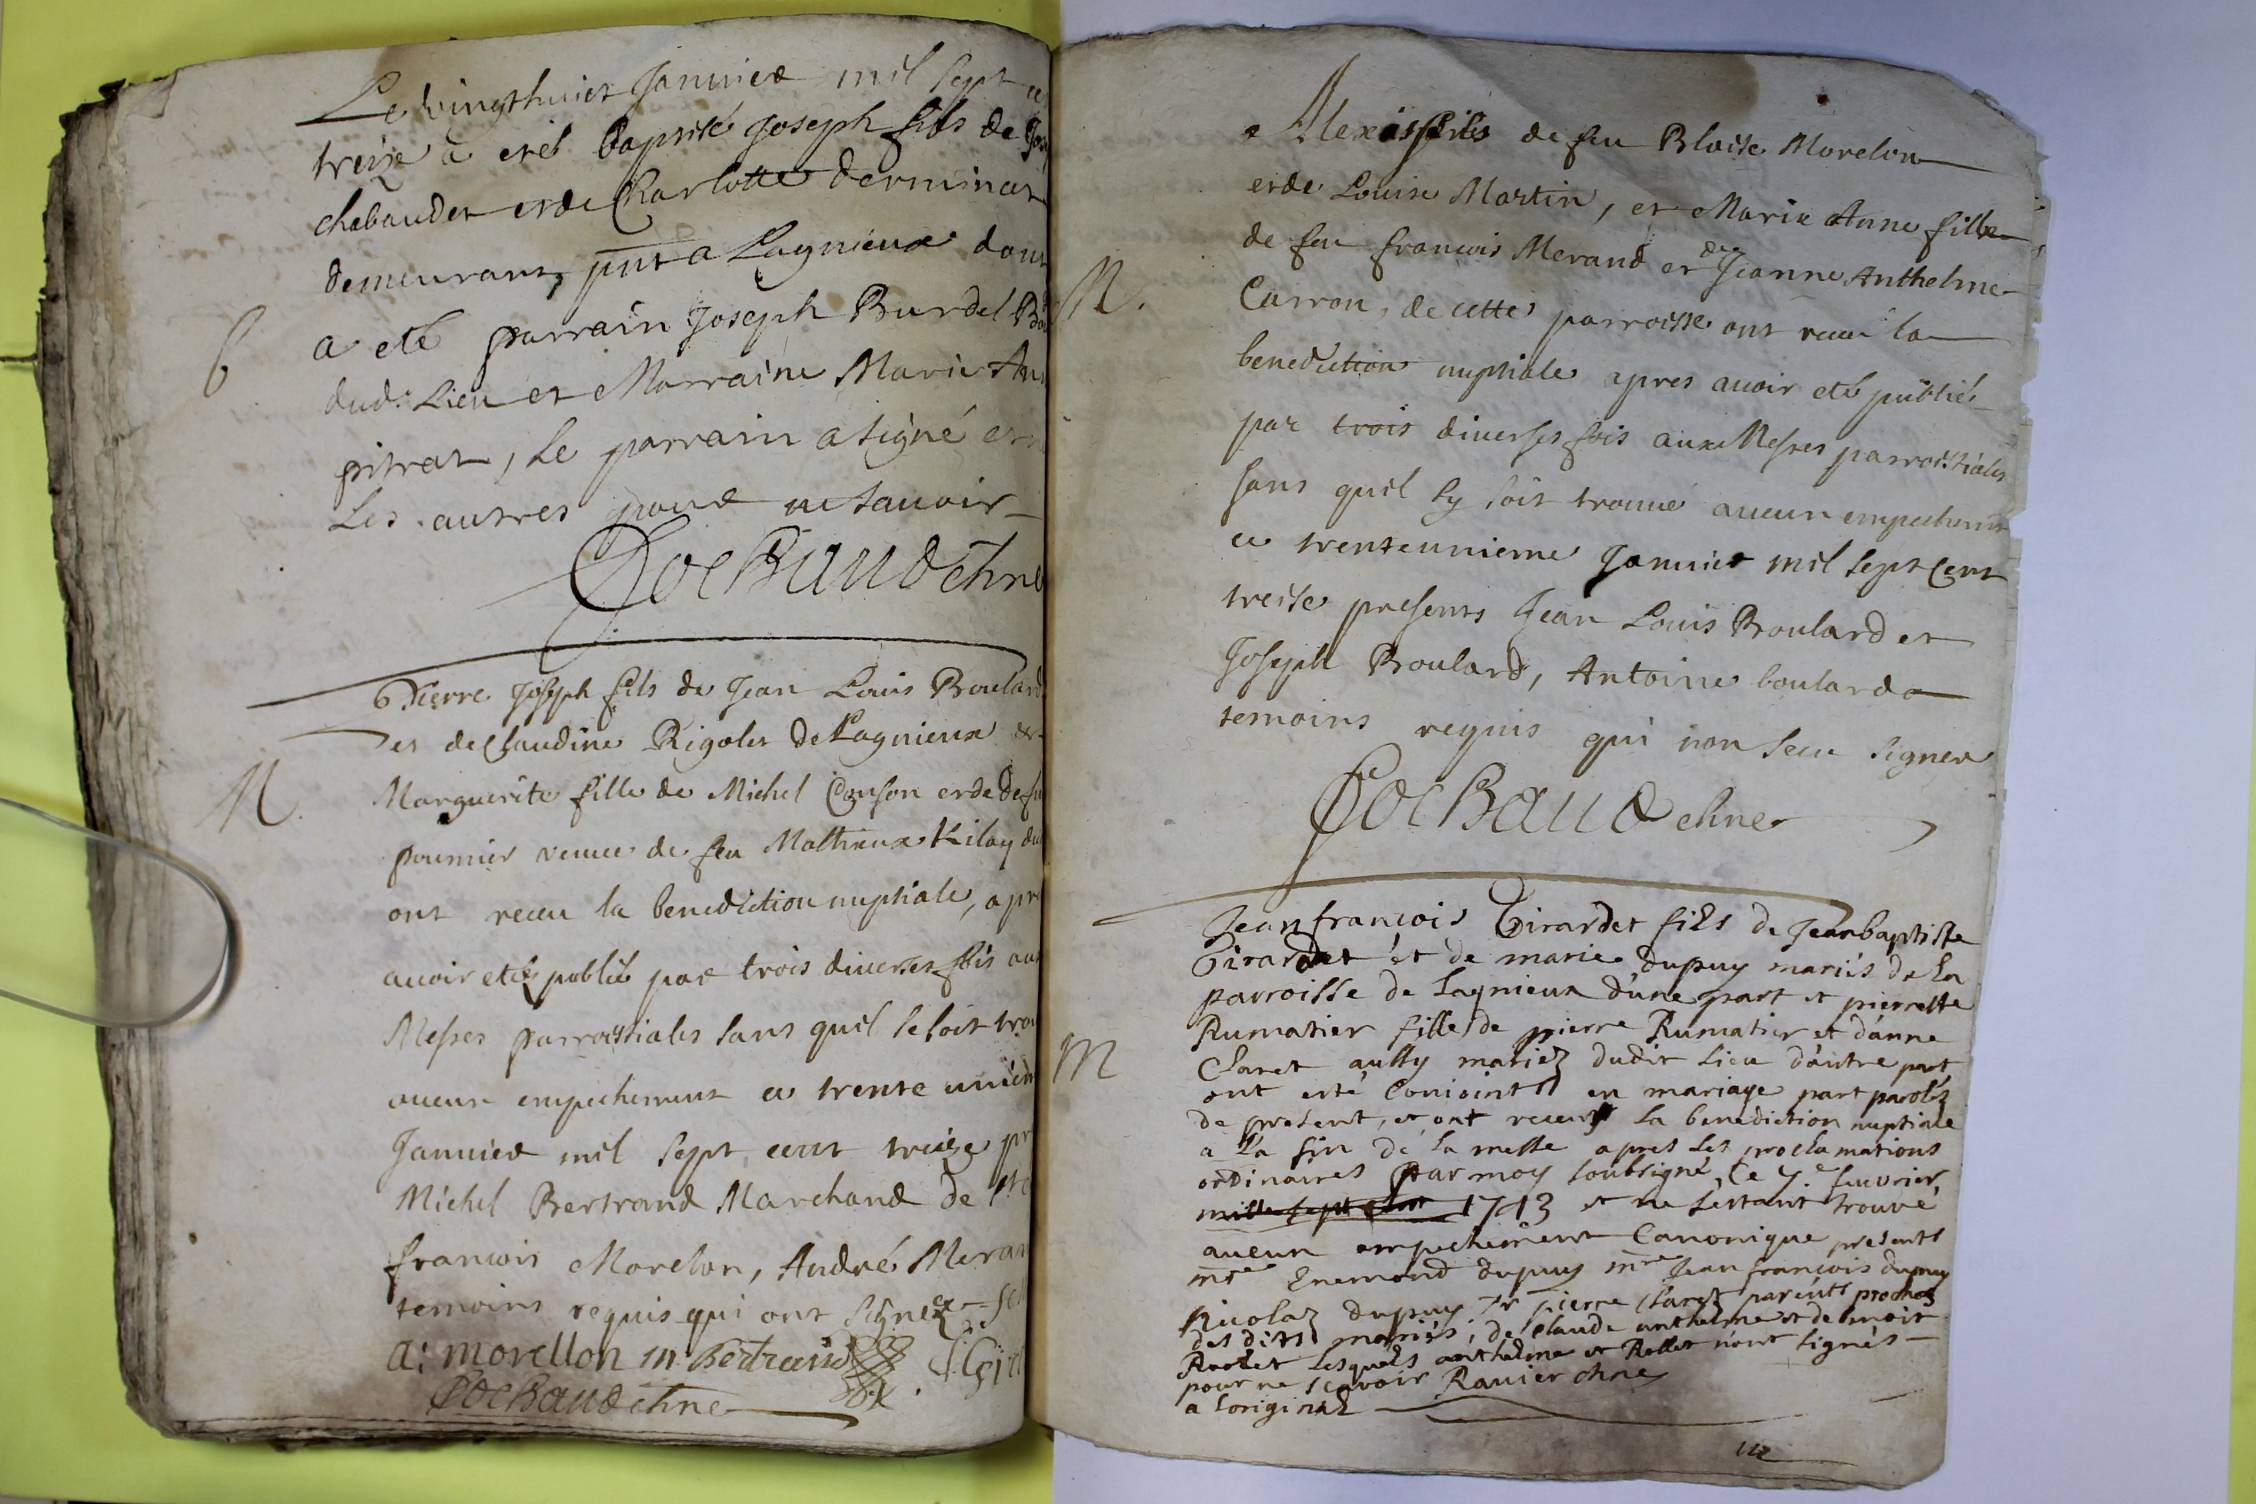 Le vingthuict Janvier mil sept
treize a esté baptisé Joseph fils de
chabaudet et de Charlotte
demeurant pnt a Lagnieux dont
b
a eté parrain Joseph Burdel
dud: Lieu et Marraine Marie
pitrat, le parrain a signé et
les autres pour ne scavoir
CocBaud chne
Pierre Joseph fils de Jean Louis Boulard
et de Claudine Rigolet de Lagnieux et
M.
Marguerite fille de Michel Conson et de
pounier veuue de feu Mathieux Kilay
ont receu la benediction nuptiale, apr
auoir etés publiés par trois diuerses fois aux
Messes parroissiales sans quil se soit trou
aucun empechement ce trente unieme
Januier mil sept cent treize
Michel Bertrand Marchand de
francois Morelon, André Meran
temoins requis qui ont signez
a: morellon m Bertrand
CocBaud chne
Alexis fils de feu Blaise Morelon
et de Louise Martin, et Marie Anne fille
de feu francois Merand et de Jeanne Anthelme
M.
Carron, de cette parroisse ont receu la
benediction nuptiale apres auoir eté publiés
par trois diuerses fois aux Messes parroissiales
sans quil sy soit trouué aucun empechement
ce trenteunieme Januier mil sept Cent
treise presents Jean Louis Boulard et
Joseph Boulard, Antoine boulard
temoins requis qui non sceu signer
CocBaud chne
Jean francois Girardet fils de Jean baptiste
Girardet et de marie dupuy mariés de la
parroisse de Lagnieux d'une part et pierrette
Rumatier fille de pierre Rumatier et d'anne
M
Claret aussy mariez dudit Lieu d'autre part
ont esté Conioints en mariage part paroles
de present, et ont receus la benediction nuptiale
a la fin de la messe apres les proclamations
ordinaires par moy soubsigné, Ce 7.e feuvrier
mille sept cent 1713 et ne s'estant trouvé
aucun empechement Canonique presents
mre Enemond dupuy mre Jean francois dupuy
Nicolas dupuy Sr pierre Claret parents proches
des dits mariés, de Claude anthelme et de benoit
Rollet lesquels anthelme et Rollet n'ont signés
pour ne scavoir Ravier chne
a loriginal